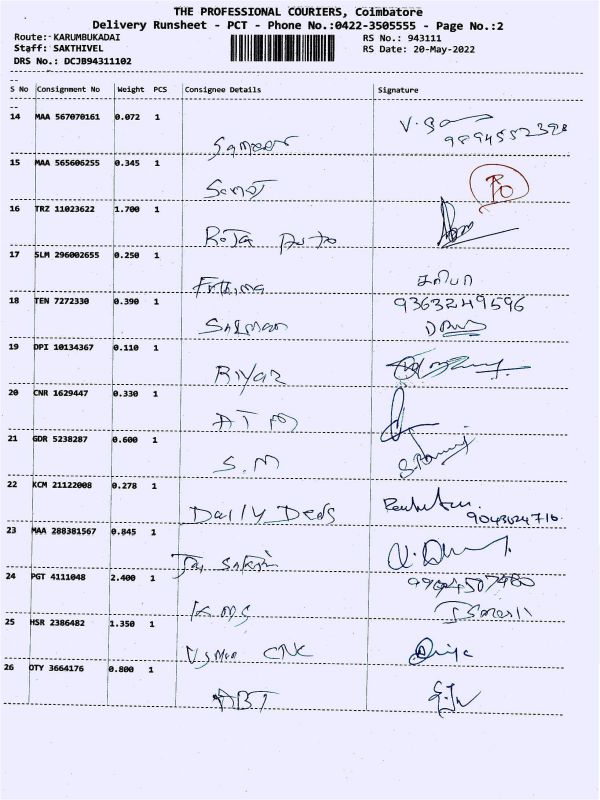 THE PROFESSIONAL COURIERS, Coimbatore
Delivery Runsheet - PCT - Phone No.:0422-3505555 - Page No.:2
Route: KARUMBUKADAI RS No.: 943111
Staff: SAKTHIVEL RS Date: 20-May-2022
DRS No.: DCJB94311102
S No Consignment No Weight PCS Consignee Details Signature
14 MAA 567070161 0.072 1
Sameer
15 MAA 565606255 0.345 1
16 TRZ 11023622 1.700 1
Roja Auto
17 SLM 296002655 0.250 1
Fathima
18 TEN 7272330 0.390 1 9363249596
Salman
19 DPI 10134367 0.110 1
Riyaz
20 CNR 1629447 0.330 1
ATM
21 GDR 5238287 0.600 1
S.M
22 KCM 21122008 0.278 1
Daily Deds
23 MAA 288381567 0.845 1
24 PGT 4111048 2.400 1
KMS
25 HSR 2386482 1.350 1
CNC
26 OTY 3664176 0.800 1
ABT